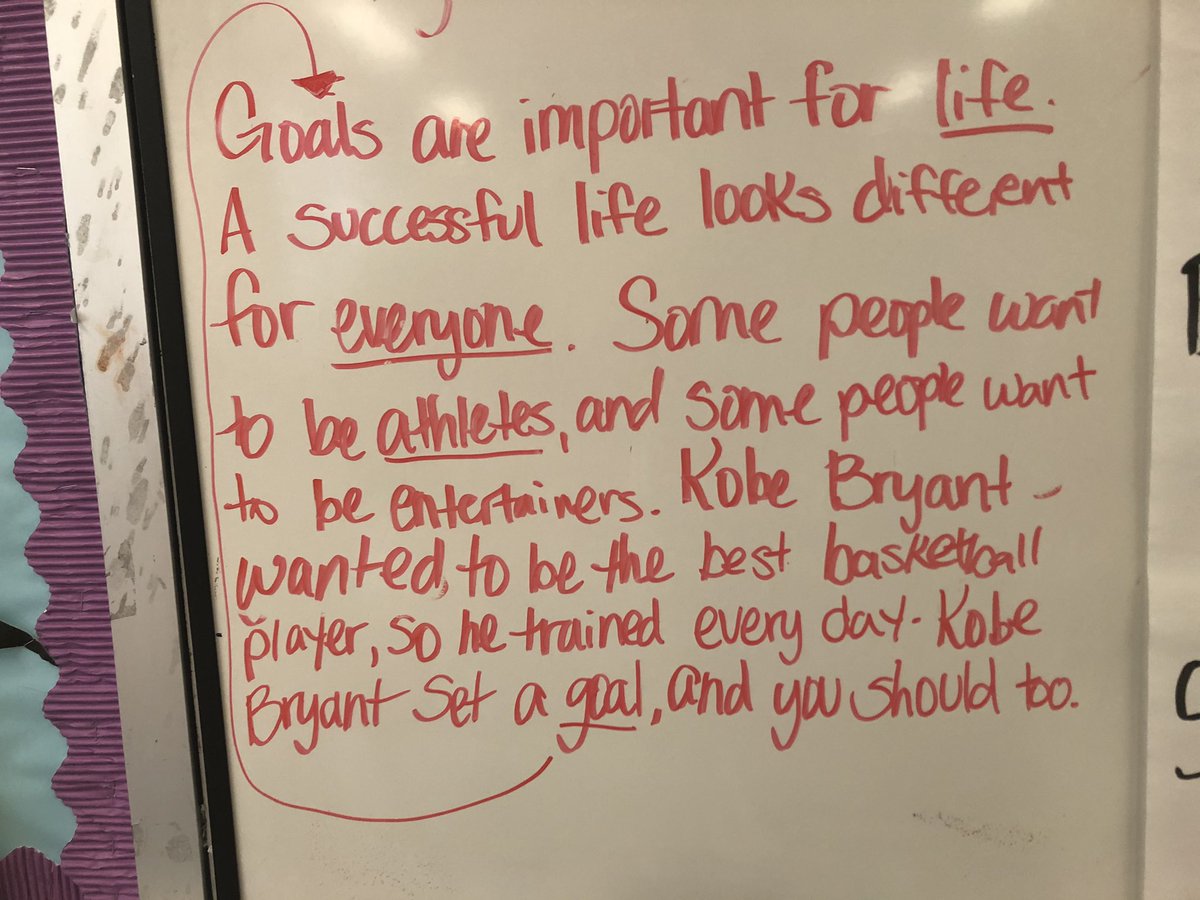 Goals are important for life.
A successful life looks different
for everyone. Some people want
to be athletes, and some people want
to be entertainers. Kobe Bryant
wanted to be the best basketball
player, so he trained every day. Kobe
Bryant set a goal, and you should too.